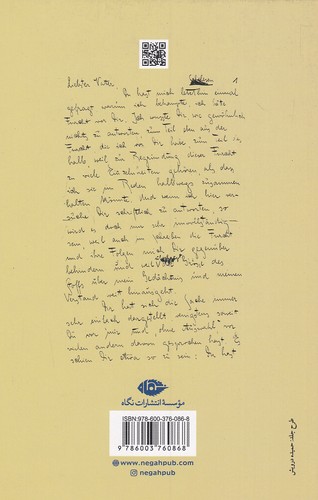 Liebster Vater, 1
Du hast mich letzthin einmal
gefragt, warum ich behaupte, ich hätte
Furcht vor Dir. Ich wusste Dir, wie gewöhnlich,
nichts zu antworten, zum Teil eben aus der
Furcht die ich vor Dir habe, zum Teil des
halb, weil zur Begründung dieser Furcht
zu viele Einzelnheiten gehören, als dass
ich sie im Reden halbwegs zusammen
halten könnte. Und wenn ich hier ver-
suche Dir schriftlich zu antworten, so
wird es doch nur sehr unvollständig
sein, weil auch im Schreiben die Furcht
und ihre Folgen mich Dir gegenüber
behindern und weil Grösse des
Stoffs über mein Gedächtnis und meinen
Verstand weit hinausgeht.
Dir hat sich die Sache immer
sehr einfach dargestellt, wenigstens soweit
Du vor mir und, ohne Auswahl, vor
vielen andern davon gesprochen hast. Es
schien Dir etwa so zu sein: Du hast
مؤسسهٔ انتشارات نگاه
ISBN: 978-600-376-086-8
9 786003 760868
www.negahpub.com
negahpub
طرح جلد: حمیده درویش